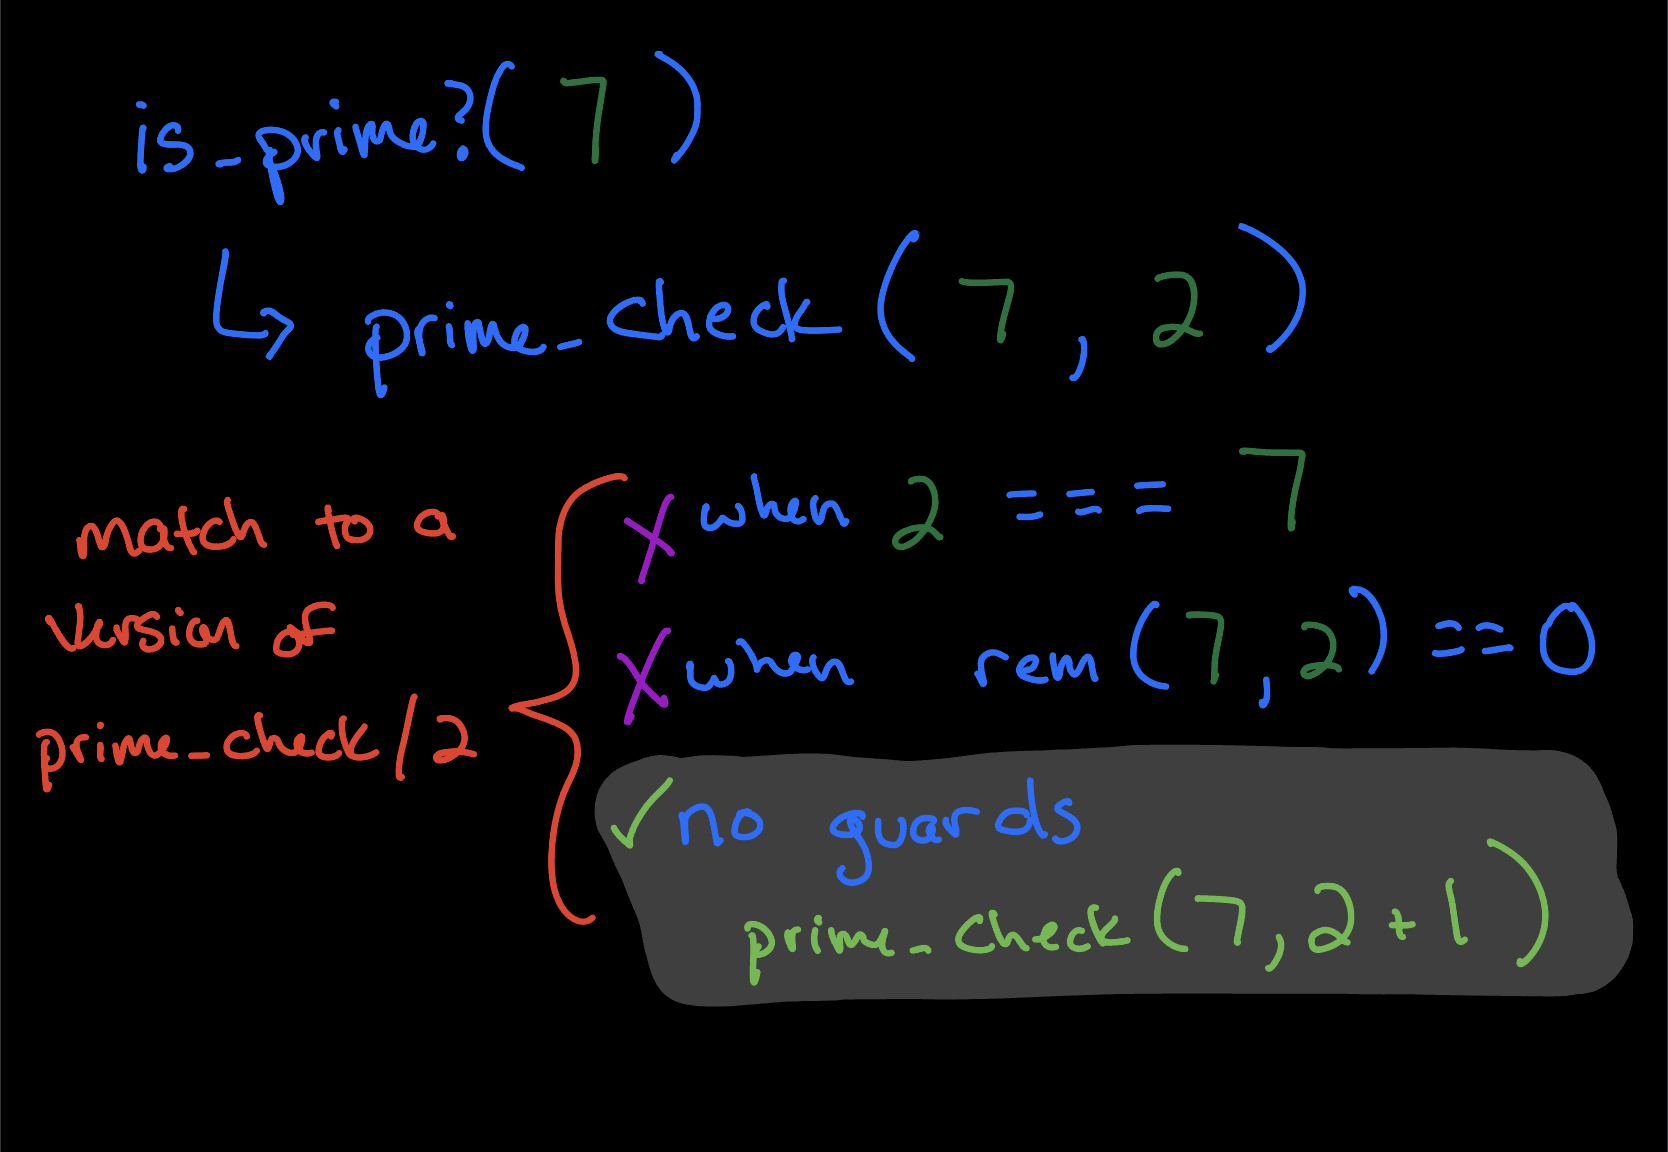 is_prime?(7)
↳ prime_check(7, 2)
match to a
version of
prime_check/2
✗ when 2 === 7
✗ when rem(7, 2) == 0
✓ no guards
prime_check(7, 2 + 1)